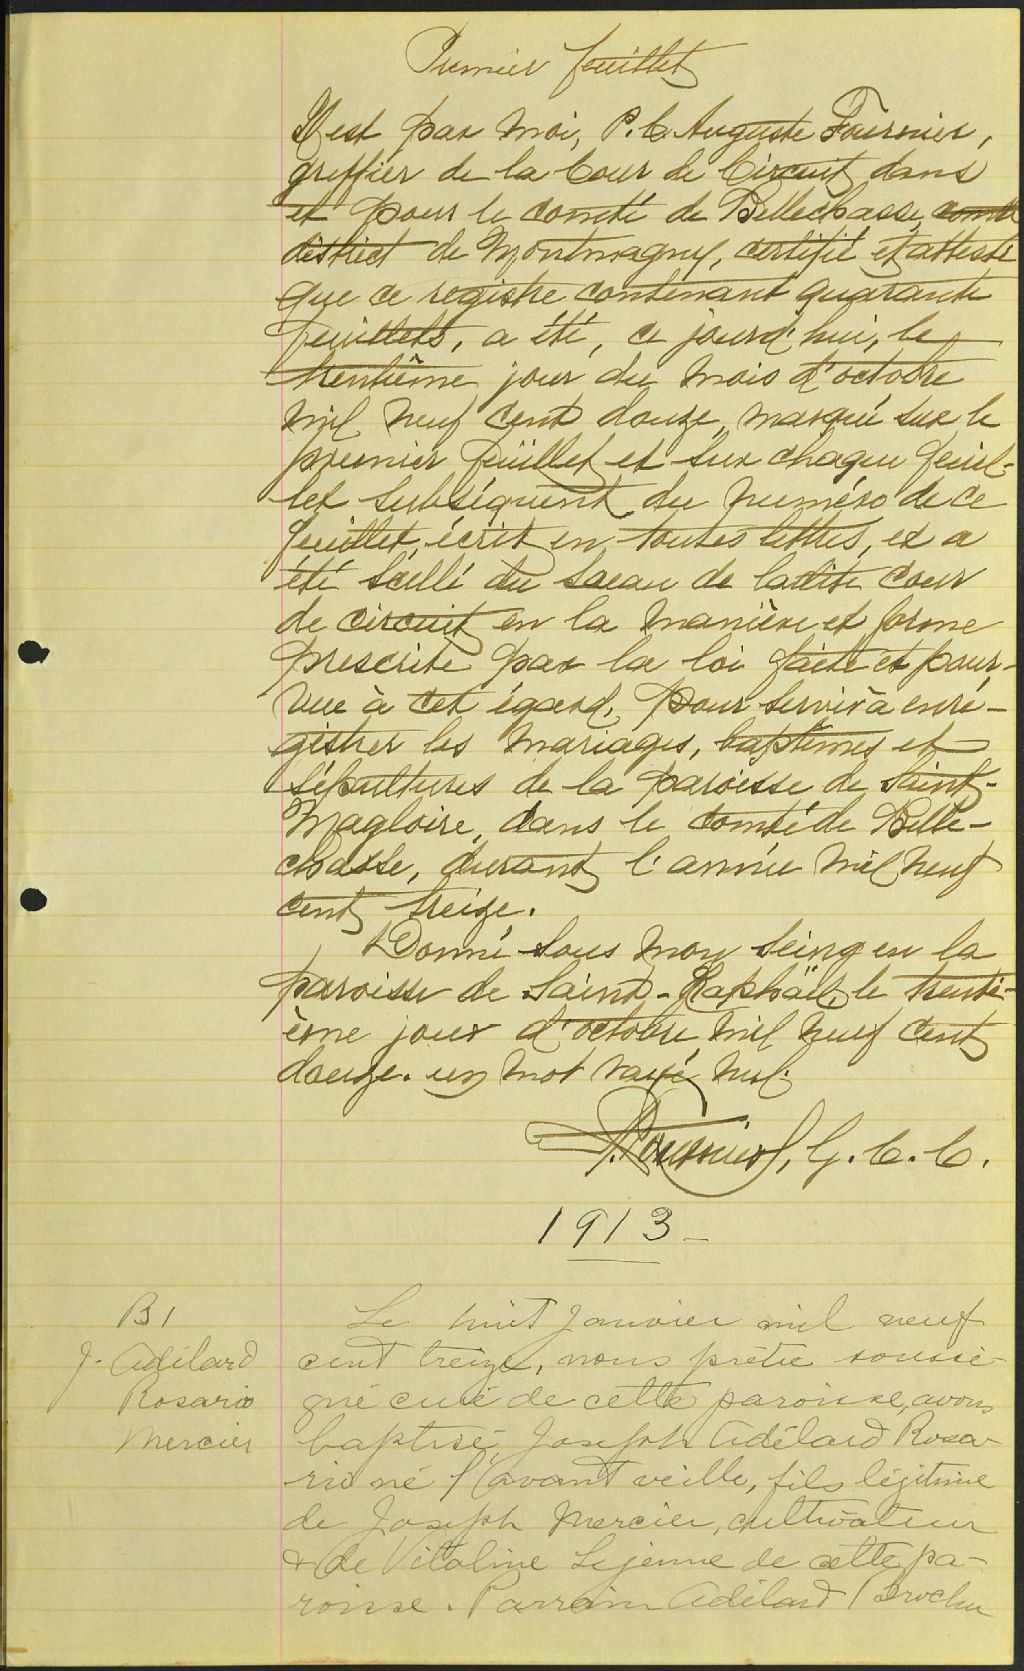 Premier feuillet
Il est par moi, P. C. Auguste Fournier,
greffier de la Cour de Circuit dans
et pour le comté de Bellechasse, comté
district de Montmagny, certifié et attesté
que ce registre contenant quarante
feuillets, a été, ce jourd'hui, le
trentième jour du mois d'octobre
mil neuf cent douze, marqué sur le
premier feuillet et sur chaque feuil-
let subséquent du numéro de ce
feuillet, écrit en toutes lettres, et a
été scellé du sceau de ladite Cour
de circuit en la manière et forme
prescrite par la loi faite et pour-
vue à cet égard, pour servir à enre-
gistrer les mariages, baptêmes et
sépultures de la paroisse de Saint-
Magloire, dans le comté de Belle-
chasse, durant l'année mil neuf
cent treize.
Donné sous mon seing en la
paroisse de Saint-Raphaël, le trenti-
ème jour d'octobre mil neuf cent
douze. un mot rayé nul.
Fournier, G. C. C.
1913
B 1
J. Adélard
Rosario
Mercier
Le huit janvier mil neuf
cent treize, nous prêtre soussi-
gné curé de cette paroisse, avons
baptisé Joseph Adélard Rosa-
rio né l'avant veille, fils légitime
de Joseph Mercier, cultivateur
& de Vitaline Lejeune de cette pa-
roisse. Parrain Adélard Brochu